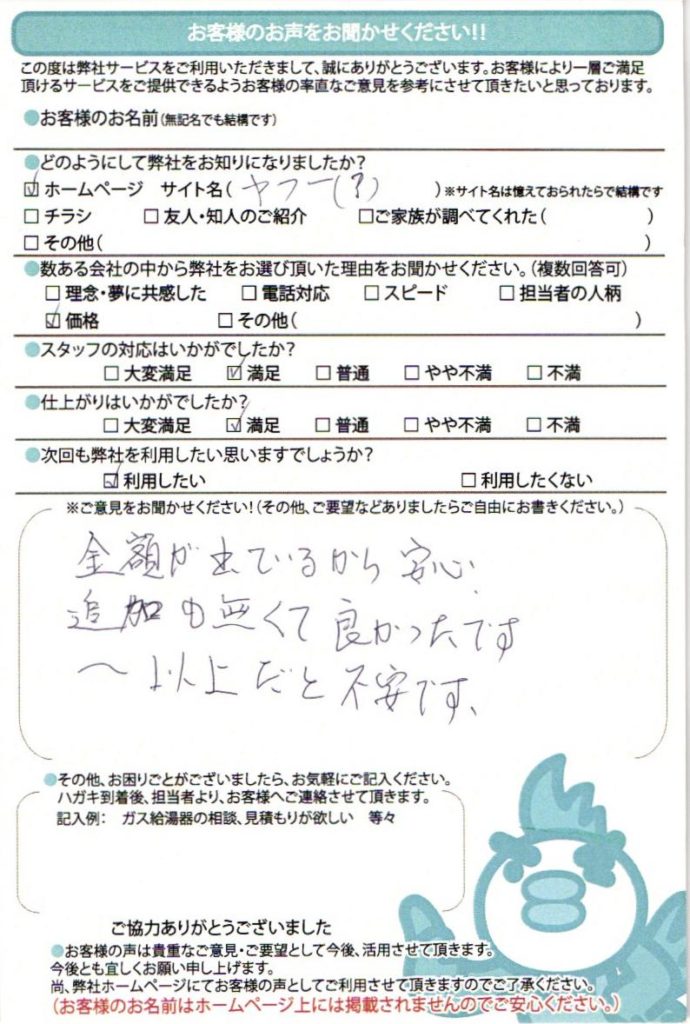 お客様のお声をお聞かせください!!
この度は弊社サービスをご利用いただきまして、誠にありがとうございます。お客様により一層ご満足
頂けるサービスをご提供できるようお客様の率直なご意見を参考にさせて頂きたいと思っております。
●お客様のお名前(無記名でも結構です)
●どのようにして弊社をお知りになりましたか?
☑ホームページ サイト名( ヤフー(?) )※サイト名は憶えておられたらで結構です
□チラシ □友人・知人のご紹介 □ご家族が調べてくれた( )
□その他( )
●数ある会社の中から弊社をお選び頂いた理由をお聞かせください。(複数回答可)
□理念・夢に共感した □電話対応 □スピード □担当者の人柄
☑価格 □その他( )
●スタッフの対応はいかがでしたか?
□大変満足 ☑満足 □普通 □やや不満 □不満
●仕上がりはいかがでしたか?
□大変満足 ☑満足 □普通 □やや不満 □不満
●次回も弊社を利用したい思いますでしょうか?
☑利用したい □利用したくない
※ご意見をお聞かせください!(その他、ご要望などありましたらご自由にお書きください。)
金額が出ているから安心、
追加も無くて良かったです
〜以上だと不安です、
●その他、お困りごとがございましたら、お気軽にご記入ください。
ハガキ到着後、担当者より、お客様へご連絡させて頂きます。
記入例: ガス給湯器の相談、見積もりが欲しい 等々
ご協力ありがとうございました
●お客様の声は貴重なご意見・ご要望として今後、活用させて頂きます。
今後とも宜しくお願い申し上げます。
尚、弊社ホームページにてお客様の声としてご利用させて頂きますのでご了承ください。
(お客様のお名前はホームページ上には掲載されませんのでご安心ください。)